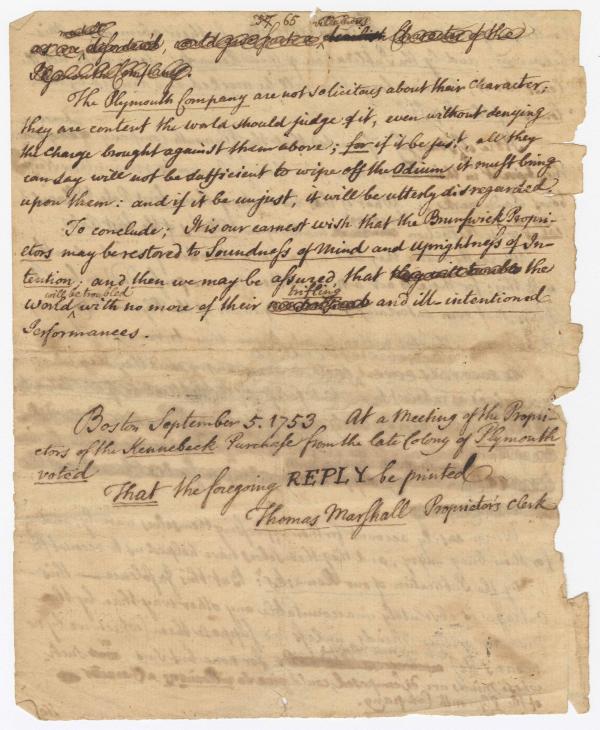 37 65
as are defended, could give such a Character of the
Plymouth Company.
The Plymouth Company are not solicitous about their Character;
they are content the world should judge of it, even without denying
the Charge brought against them above; for if it be just all they
can say will not be sufficient to wipe off the Odium it must bring
upon them: and if it be unjust, it will be utterly disregarded.
To conclude; It is our earnest wish that the Brunswick Propri-
etors may be restored to Soundness of Mind and Uprightness of In-
tention; and then we may be assured that the
will be troubled trifling
World with no more of their and ill-intentioned
Performances.
Boston September 5. 1753 At a Meeting of the Propri-
etors of the Kennebeck Purchase from the late Colony of Plymouth
voted
That the foregoing REPLY be printed
Thomas Marshall Proprietor's Clerk